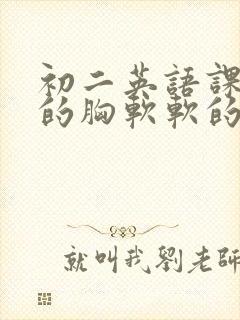 初二英語課
的胸軟軟的
就叫我劉老師